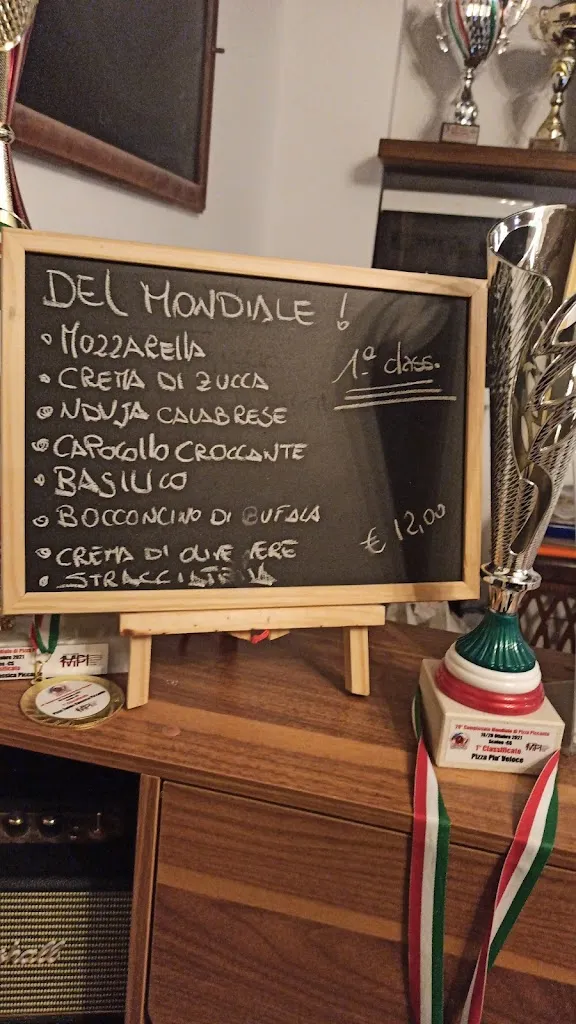 DEL MONDIALE !
• MOZZARELLA
• CREMA DI ZUCCA
• NDUJA CALABRESE
• CAPOCOLLO CROCCANTE
• BASILICO
• BOCCONCINO DI BUFALA
• CREMA DI OLIVE NERE
• STRACCIATELLA
1ª class.
€ 12,00
MPI
Campionato Mondiale di Pizza Piccante
18/20 Ottobre 2021
Scalea -CS
1° Classificato
Pizza Piu' Veloce
MPI